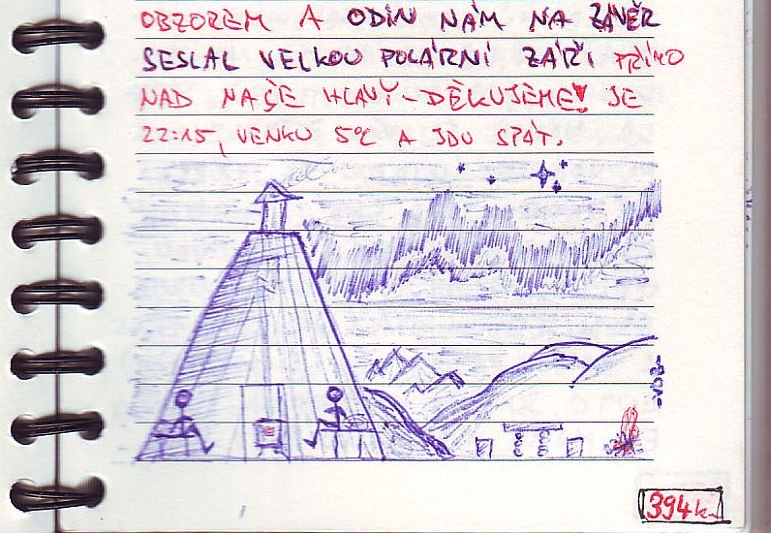 OBZOREM A ODIN NÁM NA ZÁVĚR
SESLAL VELKOU POLÁRNÍ ZÁŘI PŘÍMO
NAD NAŠE HLAVY - DĚKUJEME! JE
22:15, VENKU 5°C A JDU SPÁT.
394k